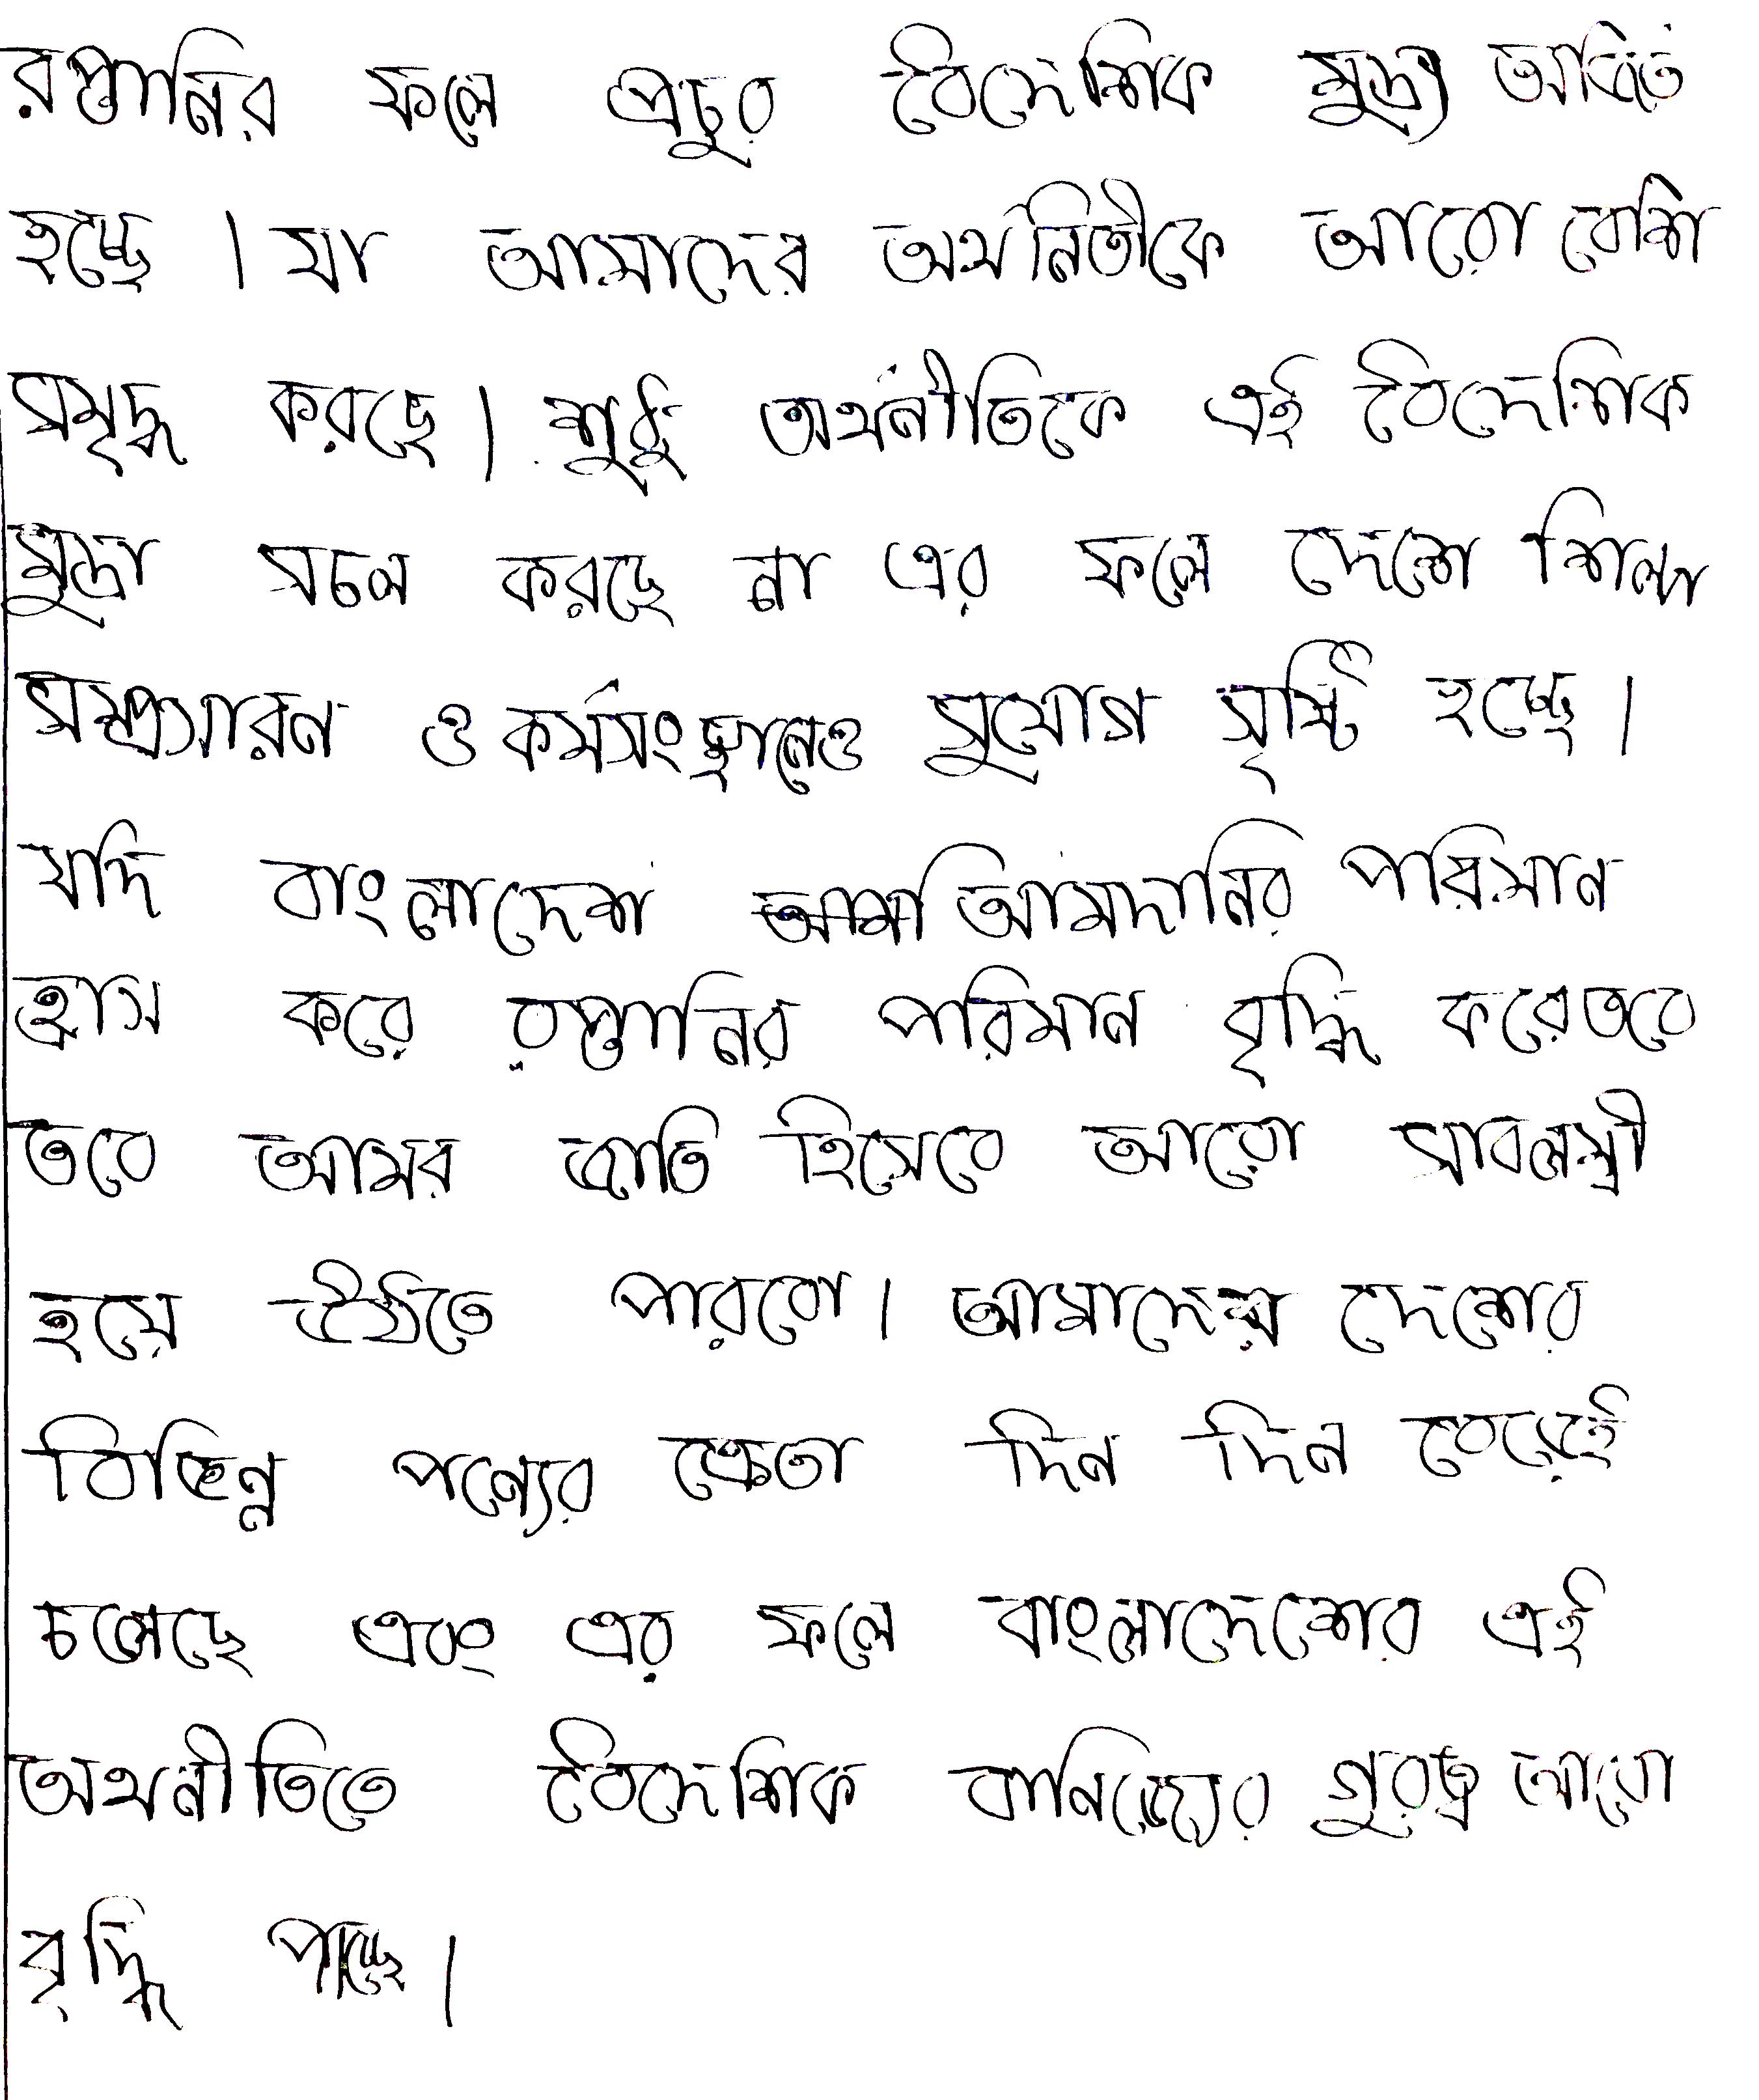 রপ্তানির ফলে প্রচুর বৈদেশিক মুদ্রা অর্জিত
হচ্ছে। যা আমাদের অর্থনিতীকে আরো বেশি
সমৃদ্ধ করছে। শুধু অর্থনীতিকে এই বৈদেশিক
মুদ্রা সচল করছে না এর ফলে দেশে শিল্প
সম্প্রসারন ও কর্মসংস্থানেও সুযোগ সৃষ্টি হচ্ছে।
যদি বাংলাদেশ আমদানির পরিমান
হ্রাস করে রপ্তানির পরিমান বৃদ্ধি করেতবে
তবে আমর জাতি হিসেবে আরো সাবলম্বী
হয়ে উঠতে পারবো। আমাদের দেশের
বিভিন্ন পন্যের ক্রেতা দিন দিন বেড়েই
চলেছে এবং এর ফলে বাংলাদেশের এই
অর্থনীতিতে বৈদেশিক বানিজ্যের গুরত্ব আরো
বৃদ্ধি পাচ্ছে।